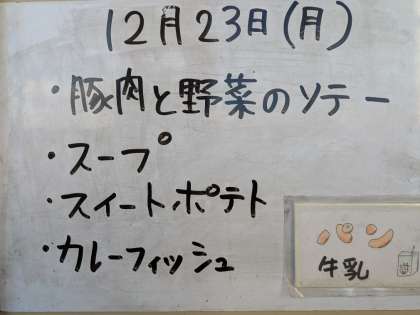 12月23日(月)
・豚肉と野菜のソテー
・スープ
・スイートポテト
・カレーフィッシュ
パン
牛乳